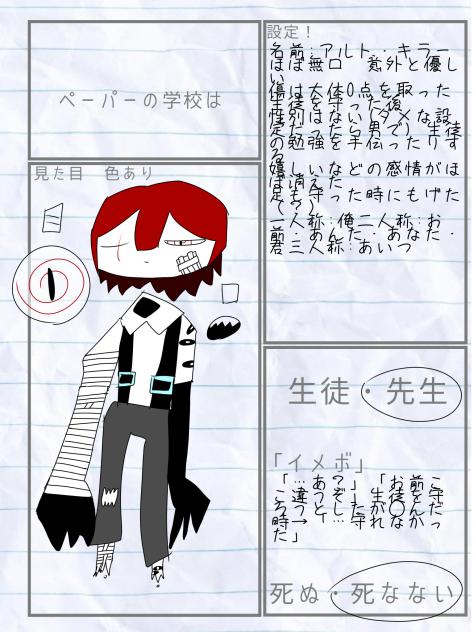 ペーパーの学校は
設定！
名前:アルト・キラー
ほぼ無口　意外と優し
い
傷は大体0点を取った
生徒を守った後
性別はない(ダメな設
定だったら男で) 生徒
の勉強を手伝ったりす
る
嬉しいなどの感情がほ
ぼ消えた
足も守った時にもげた
一人称:俺二人称:お
前・あんた・あなた・
君三人称:あいつ
見た目　色あり
生徒・先生
「イメボ」
「…あ?」「お前こ
こ違うぞ」生徒を守
ろうとしたが〇んだ
時→「…守れなかっ
た」
死ぬ・死なない